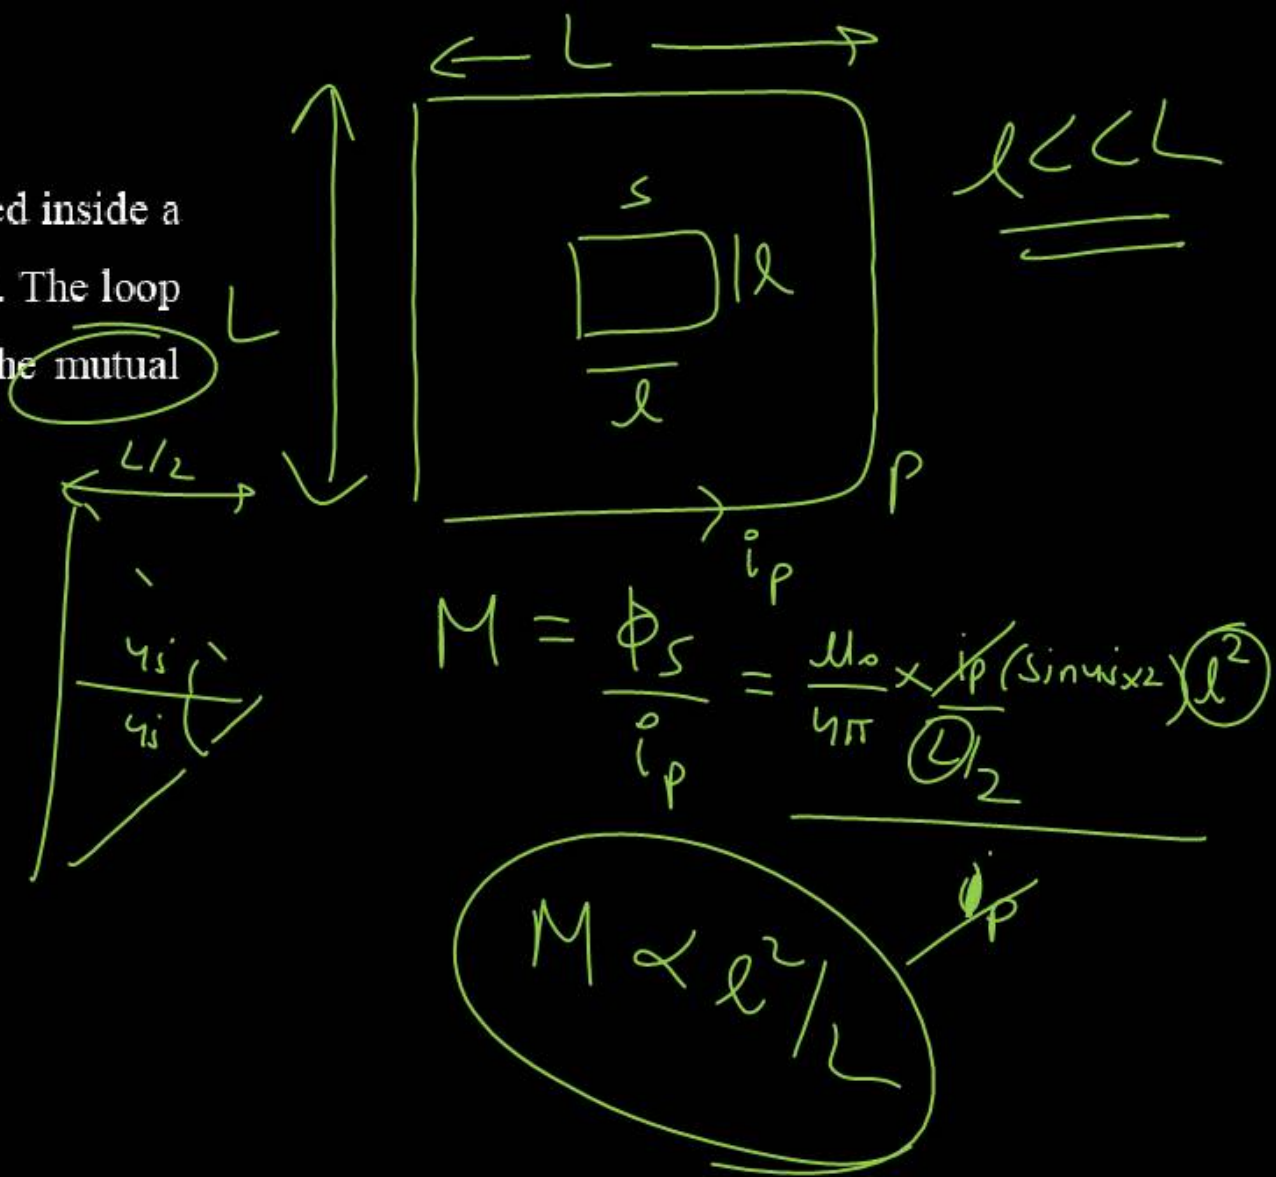 L
l<<L
ed inside a
s
. The loop
L
l
he mutual
l
L/2
P
i_p
45
45
M = ϕ_s / i_p = μ₀/4π × i_p/(L/2) (sin45×2) l² / i_p
M ∝ l²/L